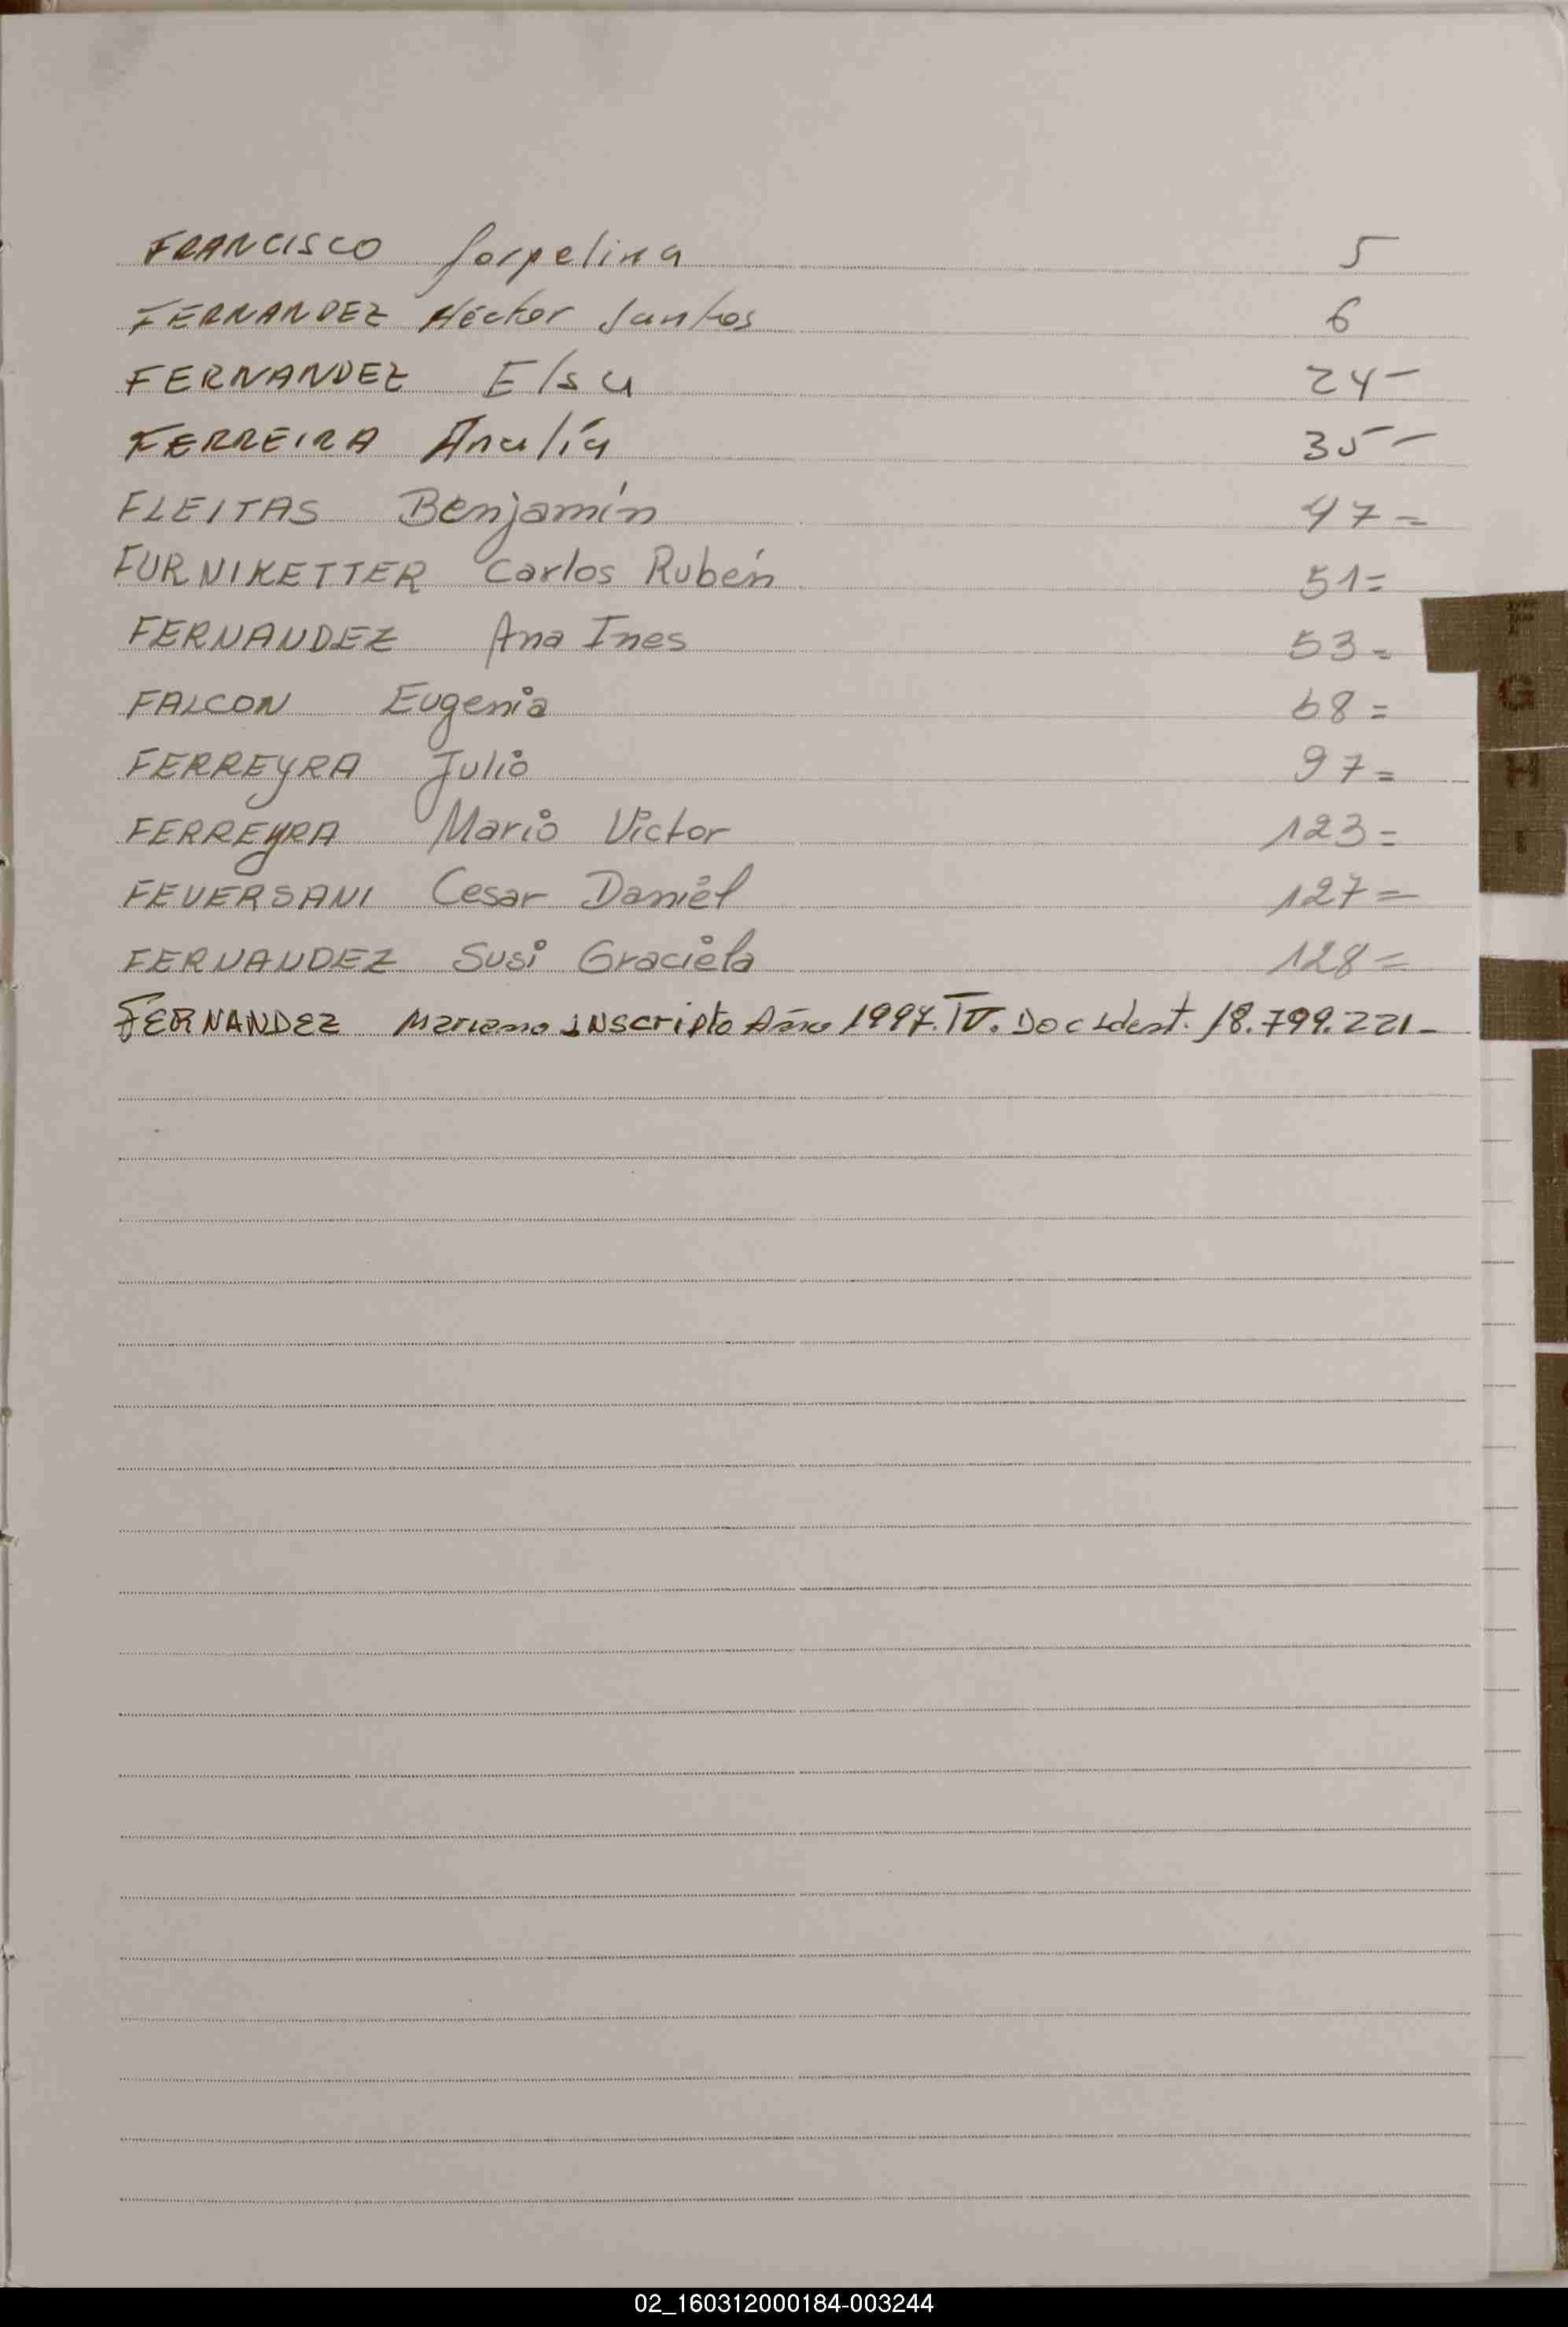 FRANCISCO Jorpelina 5
FERNANDEZ Héctor Santos 6
FERNANDEZ Elsa 24-
FERREIRA Analía 35-
FLEITAS Benjamín 47=
FURNIKETTER Carlos Rubén 51=
FERNANDEZ Ana Ines 53=
FALCON Eugenia 68=
FERREYRA Julio 97=
FERREYRA Mario Victor 123=
FEVERSANI Cesar Daniel 127=
FERNANDEZ Susi Graciela 128=
FERNANDEZ Mariano INscripto Año 1997. IV. Doc Ident. 18.799.221-
F
G
H
I
02_160312000184-003244